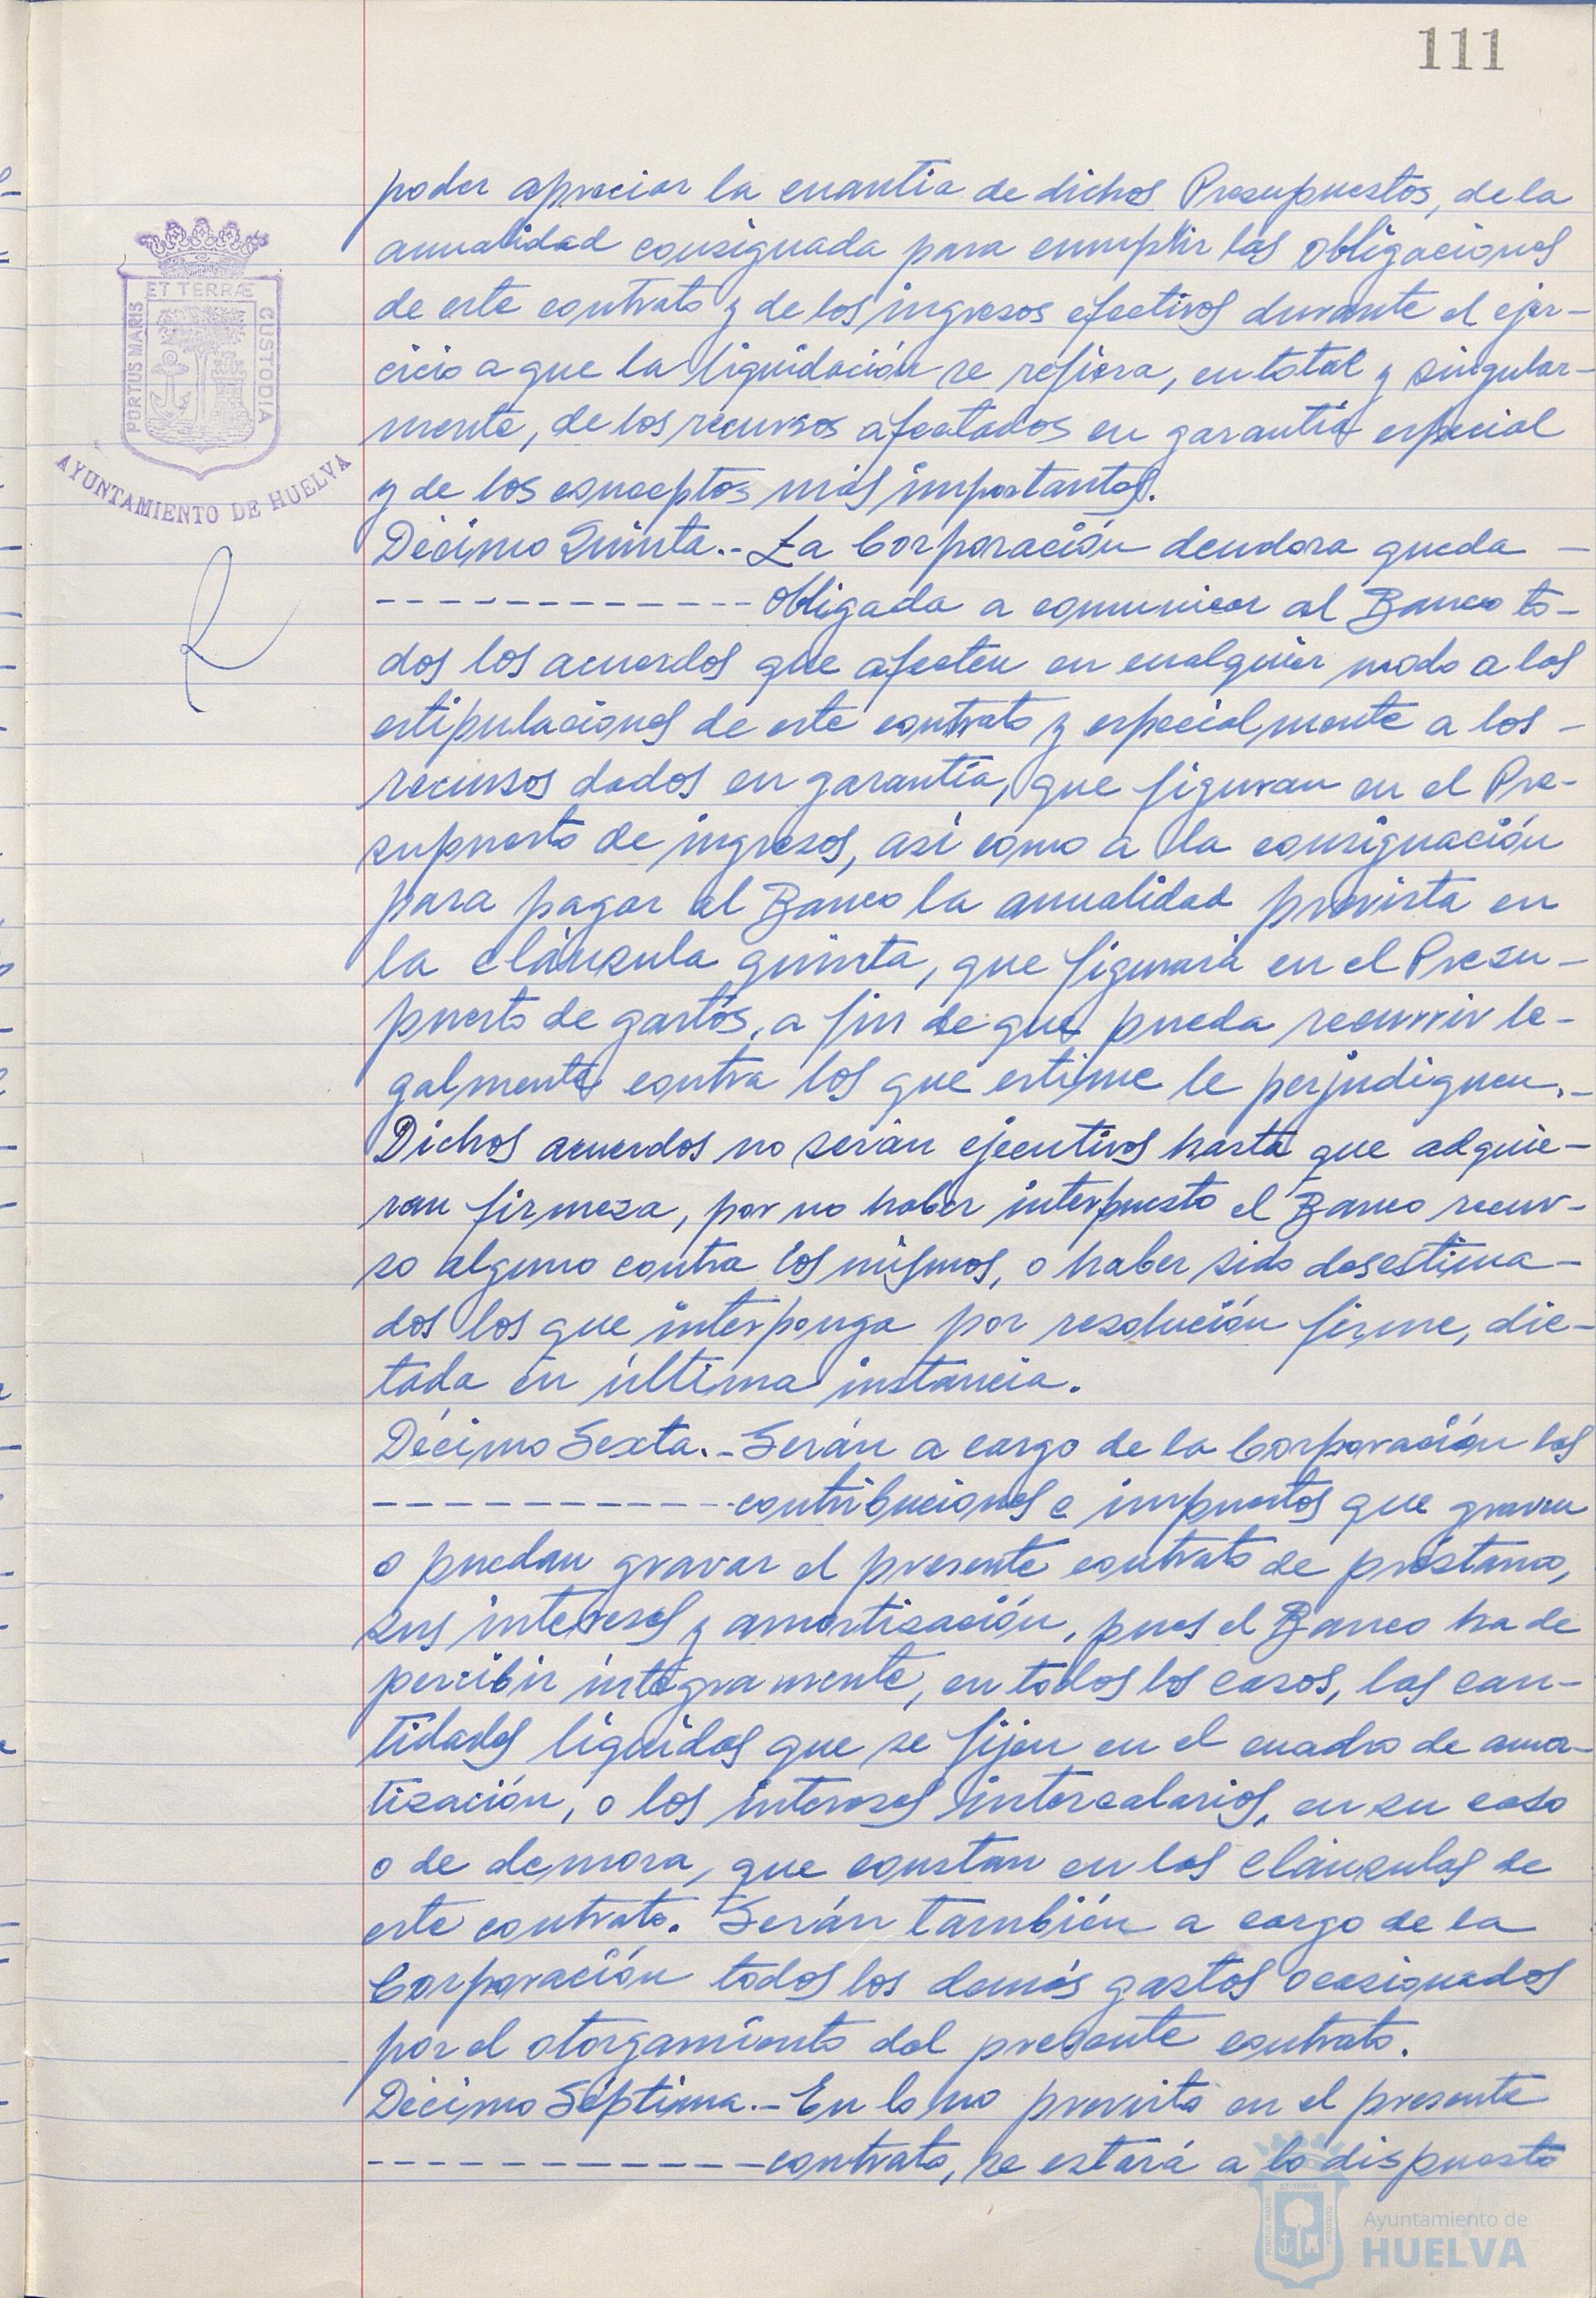 111
poder apreciar la cuantia de dichos Presupuestos, de la
anualidad consignada para cumplir las obligaciones
de este contrato y de los ingresos efectivos durante el ejer-
cicio a que la liquidación se refiera, en total y singular-
mente, de los recursos afectados en garantia especial
y de los conceptos más importantes.
Décimo Quinta.- La Corporación deudora queda -
------------- obligada a comunicar al Banco to-
dos los acuerdos que afecten en cualquier modo a las
estipulaciones de este contrato y especialmente a los -
recursos dados en garantía, que figuran en el Pre-
supuesto de ingresos, así como a la consignación
para pagar al Banco la anualidad prevista en
la cláusula quinta, que figurará en el Presu-
puesto de gastos, a fin de que pueda recurrir le-
galmente contra los que estime le perjudiquen.-
Dichos acuerdos no serán ejecutivos hasta que adquie-
ran firmeza, por no haber interpuesto el Banco recur-
so alguno contra los mismos, o haber sido desestima-
dos los que interponga por resolución firme, dic-
tada en última instancia.
Décimo Sexta.- Serán a cargo de la Corporación las
------------- contribuciones e impuestos que graven
o puedan gravar el presente contrato de préstamo,
sus intereses y amortización, pues el Banco ha de
percibir integramente, en todos los casos, las can-
tidades liquidas que se fijen en el cuadro de amor-
tización, o los intereses intercalarios, en su caso
o de demora, que constan en las cláusulas de
este contrato. Serán también a cargo de la
Corporación todos los demás gastos ocasionados
por el otorgamiento del presente contrato.
Décimo Séptima.- En lo no previsto en el presente
------------- contrato, se estará a lo dispuesto
ET TERRÆ
PORTUS MARIS
CUSTODIA
AYUNTAMIENTO DE HUELVA
Ayuntamiento de
HUELVA